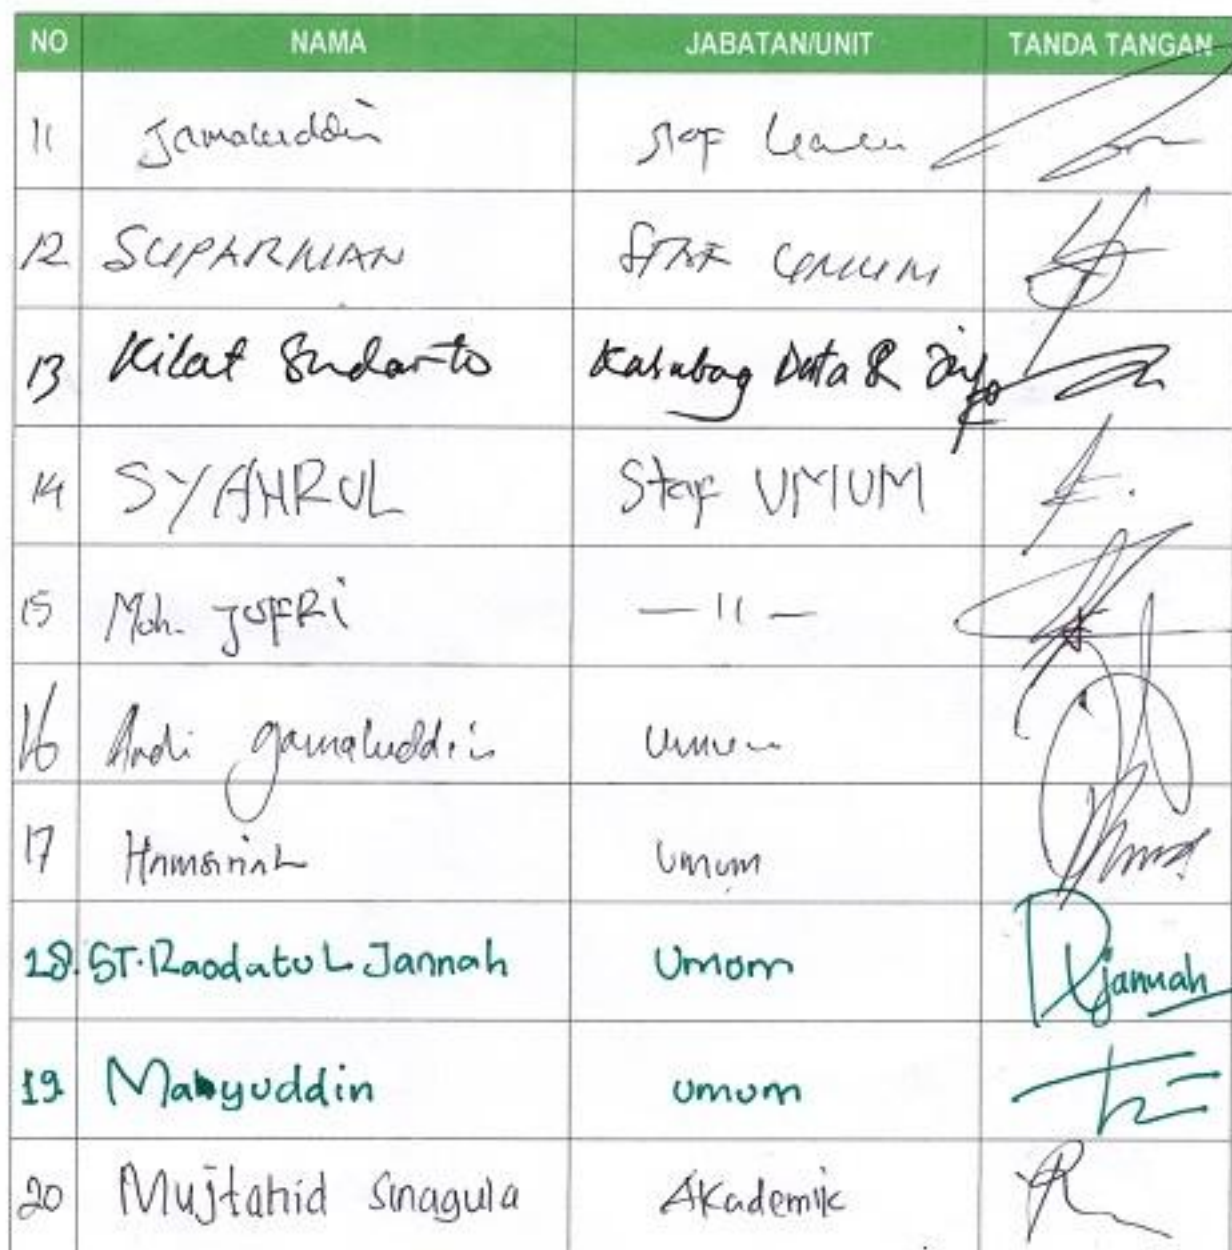 NO NAMA JABATAN/UNIT TANDA TANGAN
11 Jamaluddin Staf Umum
12 SUPARMAN STAF UMUM
13 Kilat Sudarto Kasubag Data & Info
14 SYAHRUL Staf UMUM
15 Moh. JUFRI — 11 —
16 Andi Gamaluddin Umum
17 Hamsinah Umum
18. ST. Raodatul Jannah Umum Djannah
19 Mahyuddin Umum
20 Mujtahid Sinagula Akademik